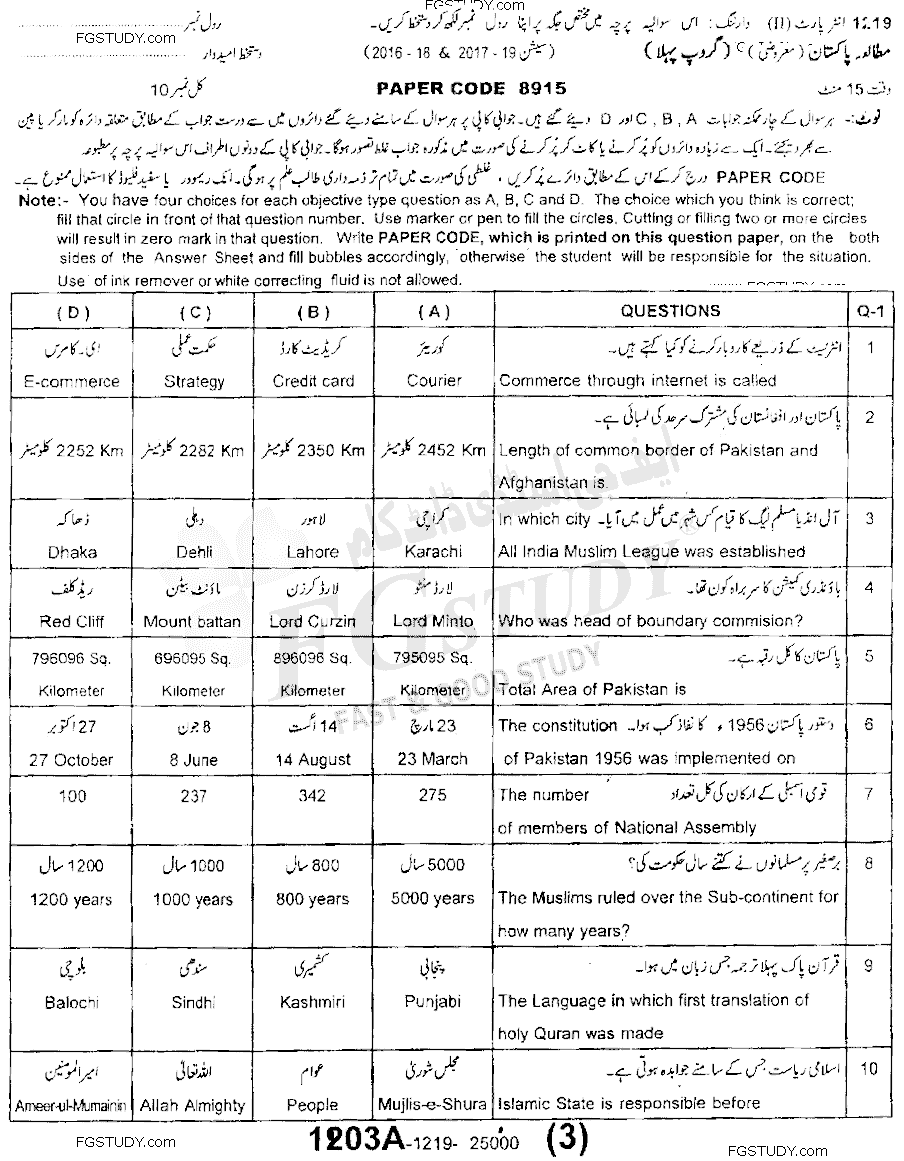 FGSTUDY.com
رول نمبر 12.19 انٹر پارٹ (II) وارننگ: اس سوالیہ پرچہ میں مختص جگہ پر اپنا رول نمبر لکھ کر دستخط کریں۔
FGSTUDY.com
مطالعہ پاکستان (معروضی) (گروپ پہلا) (سیشن 19 - 2017 & 18 - 2016) دستخط امیدوار
وقت 15 منٹ PAPER CODE 8915 کل نمبر 10
نوٹ:- ہر سوال کے چار ممکنہ جوابات A , B , C اور D دیئے گئے ہیں۔ جوابی کاپی پر ہر سوال کے سامنے دیئے گئے دائروں میں سے درست جواب کے مطابق متعلقہ دائرہ کو مارکر یا پین
سے بھر دیجئے۔ ایک سے زیادہ دائروں کو پُر کرنے یا کاٹ کر پُر کرنے کی صورت میں مذکورہ جواب غلط تصور ہوگا۔ جوابی کاپی کے دونوں اطراف اس سوالیہ پرچہ پر مطبوعہ
PAPER CODE درج کر کے اس کے مطابق دائرے پُر کریں ، غلطی کی صورت میں تمام تر ذمہ داری طالب علم پر ہوگی۔ انک ریموور یا سفید فلیوڈ کا استعمال ممنوع ہے۔
Note:- You have four choices for each objective type question as A, B, C and D. The choice which you think is correct;
fill that circle in front of that question number. Use marker or pen to fill the circles. Cutting or filling two or more circles
will result in zero mark in that question. Write PAPER CODE, which is printed on this question paper, on the both
sides of the Answer Sheet and fill bubbles accordingly, otherwise the student will be responsible for the situation.
Use of ink remover or white correcting fluid is not allowed.
FGSTUDY.com
( D ) ( C ) ( B ) ( A ) QUESTIONS Q-1
ای۔کامرس حکمت عملی کریڈیٹ کارڈ کوریئر انٹرنیٹ کے ذریعے کاروبار کرنے کو کیا کہتے ہیں۔ 1
E-commerce Strategy Credit card Courier Commerce through internet is called
پاکستان اور افغانستان کی مشترک سرحد کی لمبائی ہے۔ 2
2252 Km کلومیٹر 2282 Km کلومیٹر 2350 Km کلومیٹر 2452 Km کلومیٹر Length of common border of Pakistan and
Afghanistan is.
ڈھاکہ دہلی لاہور کراچی In which city آل انڈیا مسلم لیگ کا قیام کس شہر میں عمل میں آیا۔ 3
Dhaka Dehli Lahore Karachi All India Muslim League was established
ریڈ کلف ماؤنٹ بیٹن لارڈ کرزن لارڈ منٹو باؤنڈری کمیشن کا سربراہ کون تھا۔ 4
Red Cliff Mount battan Lord Curzin Lord Minto Who was head of boundary commision?
796096 Sq. 696095 Sq. 896096 Sq. 795095 Sq. پاکستان کا کل رقبہ ہے۔ 5
Kilometer Kilometer Kilometer Kilometer Total Area of Pakistan is
27 اکتوبر 8 جون 14 اگست 23 مارچ The constitution دستور پاکستان 1956 ء کا نفاذ کب ہوا۔ 6
27 October 8 June 14 August 23 March of Pakistan 1956 was implemented on
100 237 342 275 The number قومی اسمبلی کے ارکان کی کل تعداد 7
of members of National Assembly
1200 سال 1000 سال 800 سال 5000 سال برصغیر پر مسلمانوں نے کتنے سال حکومت کی؟ 8
1200 years 1000 years 800 years 5000 years The Muslims ruled over the Sub-continent for
how many years?
بلوچی سندھی کشمیری پنجابی قرآن پاک پہلا ترجمہ جس زبان میں ہوا۔ 9
Balochi Sindhi Kashmiri Punjabi The Language in which first translation of
holy Quran was made
امیرالمومنین اللہ تعالٰی عوام مجلس شوریٰ اسلامی ریاست جس کے سامنے جوابدہ ہوتی ہے۔ 10
Ameer-ul-Mumainin Allah Almighty People Mujlis-e-Shura Islamic State is responsible before
ایف جی اسٹڈی ڈاٹ کام
FGSTUDY®
FAST & GOOD STUDY
FGSTUDY.com 1203A-1219- 25000 (3) FGSTUDY.com